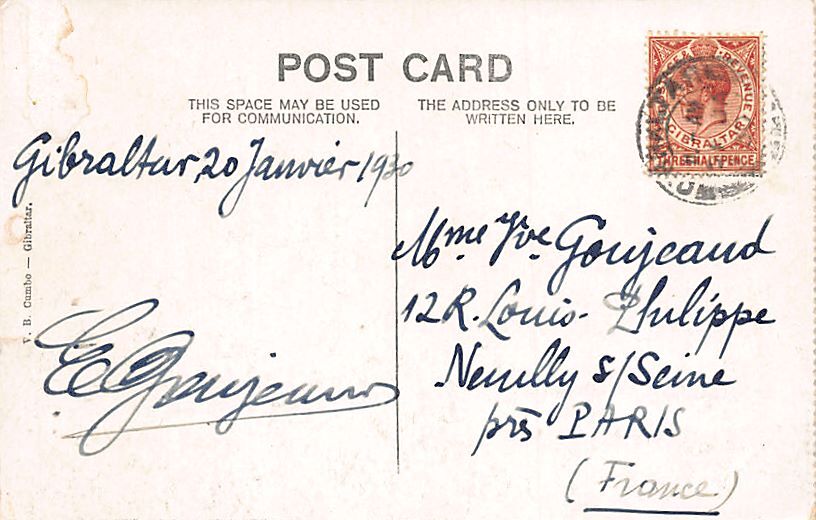 POST CARD
THIS SPACE MAY BE USED
FOR COMMUNICATION.
THE ADDRESS ONLY TO BE
WRITTEN HERE.
POSTAGE & REVENUE
GIBRALTAR
THREE HALF PENCE
Gibraltar, 20 Janvier 1930
E Goujeaud
V. B. Cumbo — Gibraltar.
Mme Yve Goujeaud
12 R. Louis-Philippe
Neuilly s/Seine
près PARIS
(France)